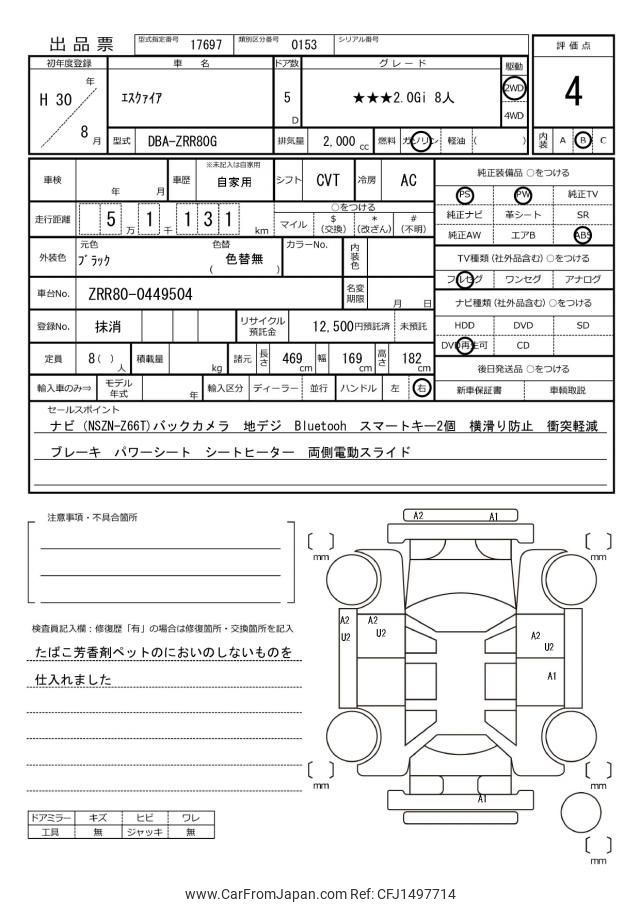 出品票
型式指定番号 17697 類別区分番号 0153 シリアル番号
評価点
4
初年度登録 車名 ドア数 グレード 駆動
H 30 年 8 月
エスクァイア
5 D
★★★2.0Gi 8人
2WD
4WD
型式 DBA-ZRR80G 排気量 2,000 cc 燃料 ガソリン 軽油 ( )
内装 A B C
車検 年 月 車歴 ※未記入は自家用 自家用 シフト CVT 冷房 AC
走行距離 5 万 1 千 1 3 1 km
○をつける
マイル $ (交換) * (改ざん) # (不明)
外装色 元色 ブラック 色替 ( 色替無 ) カラーNo. 内装色
車台No. ZRR80-0449504 名変期限 月 日
登録No. 抹消 リサイクル預託金 12,500円預託済 未預託
定員 8 ( ) 人 積載量 kg 諸元 長さ 469 cm 幅 169 cm 高さ 182 cm
輸入車のみ⇒ モデル年式 年 輸入区分 ディーラー 並行 ハンドル 左 右
純正装備品 ○をつける
PS PW 純正TV
純正ナビ 革シート SR
純正AW エアB ABS
TV種類 (社外品含む) ○をつける
フルセグ ワンセグ アナログ
ナビ種類 (社外品含む) ○をつける
HDD DVD SD
DVD再生可 CD
後日発送品 ○をつける
新車保証書 車輌取説
セールスポイント
ナビ (NSZN-Z66T)バックカメラ 地デジ Bluetooh スマートキー2個 横滑り防止 衝突軽減
ブレーキ パワーシート シートヒーター 両側電動スライド
注意事項・不具合箇所
検査員記入欄：修復歴「有」の場合は修復箇所・交換箇所を記入
たばこ芳香剤ペットのにおいのしないものを
仕入れました
ドアミラー キズ ヒビ ワレ
工具 無 ジャッキ 無
A2 A1
mm mm
A2 A2
U2 U2
A2
U2
A1
mm mm
A1
mm
www.CarFromJapan.com Ref: CFJ1497714